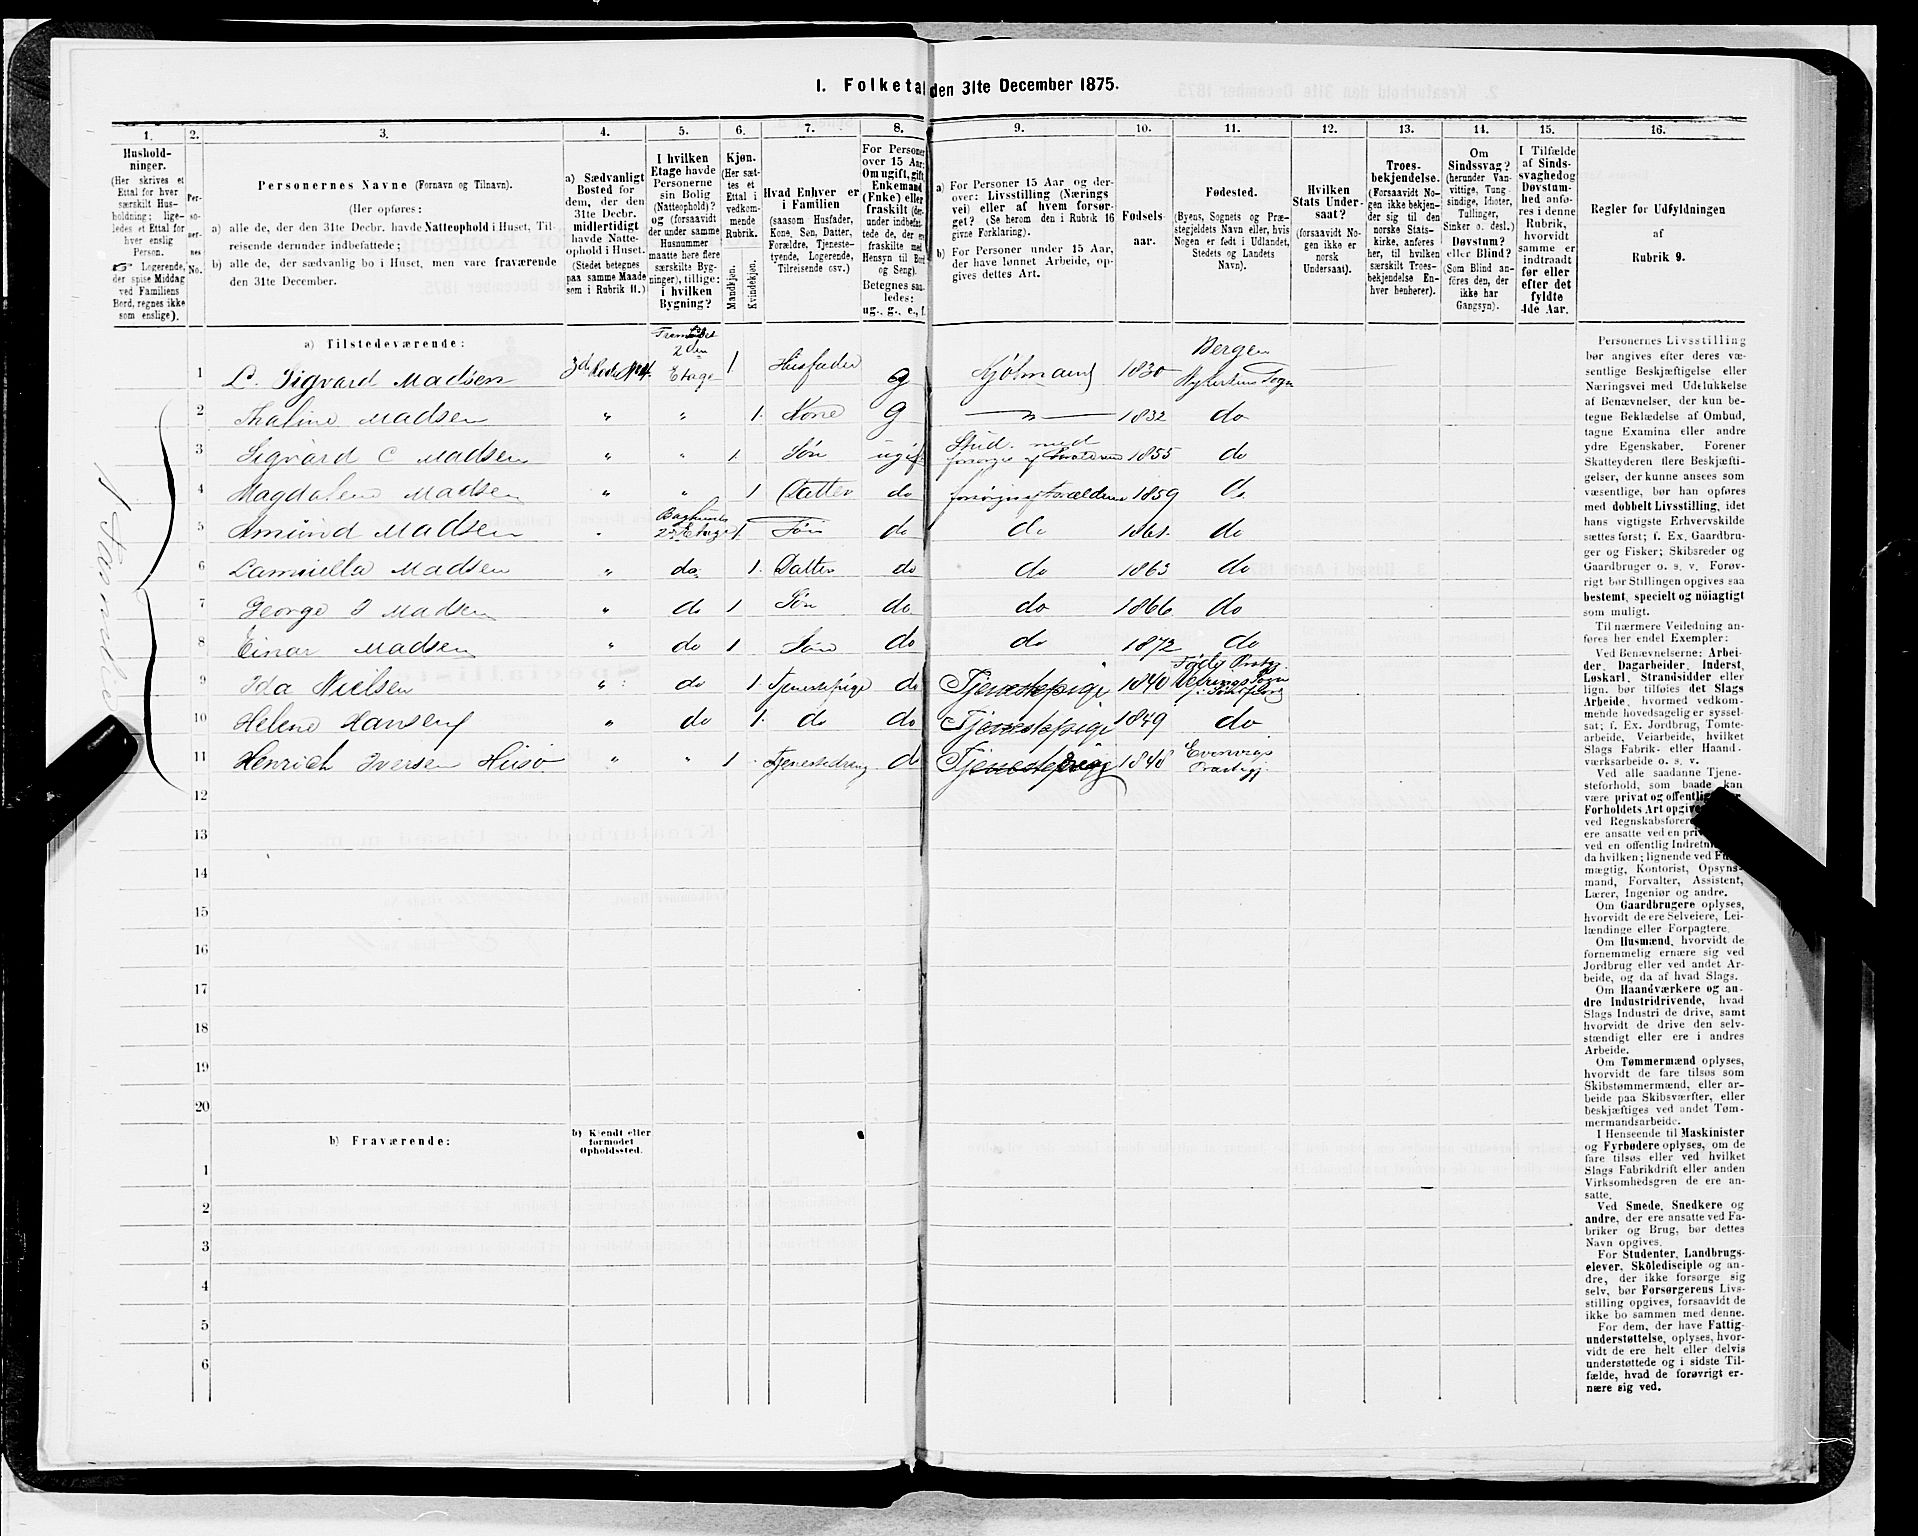 1. Folketal den 31te December 1875.
1.
2.
3.
4.
5.
6.
7.
8.
9.
10.
11.
12.
13.
14.
15.
16.
Hushold-
ninger.
(Her skrives et
Ettal for hver
særskilt Hus-
holdning; lige-
ledes et Ettal for
hver enslig
Person.
☞ Logerende,
der spise Middag
ved Familiens
Bord, regnes ikke
som enslige).
Per-
so-
ner-
nes
No.
Personernes Navne (Fornavn og Tilnavn).
(Her opføres:
a) alle de, der den 31te Decbr. havde Natteophold i Huset, Til-
reisende derunder indbefattede;
b) alle de, der sædvanlig bo i Huset, men vare fraværende
den 31te December.
a) Sædvanligt
Bosted for
dem, der den
31te Decbr.
midlertidigt
havde Natte-
ophold i Huset.
(Stedet betegnes
paa samme Maade
som i Rubrik 11.)
I hvilken
Etage havde
Personerne
sin Bolig
(Natteophold)?
og (forsaavidt
der under samme
Husnummer
maatte høre flere
særskilte Byg-
ninger), tillige:
i hvilken
Bygning?
Kjøn.
(Her sæt-
tes et
Ettal i
vedkom-
mende
Rubrik.
Mandkjøn.
Kvindekjøn.
Hvad Enhver er
i Familien
(saasom Husfader,
Kone, Søn, Datter,
Forældre, Tjeneste-
tyende, Logerende,
Tilreisende osv.)
For Personer
over 15 Aar:
Om ugift, gift
Enkemand
(Enke) eller
fraskilt (der-
under indbefat-
tede de, der ere
fraskilte med
Hensyn til Bord
og Seng).
Betegnes saa-
ledes:
ug., g., e., f.
a) For Personer 15 Aar og der-
over: Livsstilling (Nærings-
vei) eller af hvem forsør-
get? (Se herom den i Rubrik 16
givne Forklaring).
b) For Personer under 15 Aar,
der have lønnet Arbeide, op-
gives dettes Art.
Fødsels-
aar.
Fødested.
(Byens, Sognets og Præ-
stegjeldets Navn eller, hvis
Nogen er født i Udlandet,
Stedets og Landets
Navn).
Hvilken
Stats Under-
saat?
(forsaavidt No-
gen ikke er
norsk
Undersaat).
Troes-
bekjendelse.
(Forsaavidt No-
gen ikke bekjen-
der sig til den
norske Stats-
kirke, anføres
her, til hvilken
særskilt Troes-
bekjendelse En-
hver henhører).
Om
Sindssvag?
(herunder Van-
vittige, Tung-
sindige, Idioter,
Tullinger,
Sinker o. desl.)
Døvstum?
eller Blind?
(Som Blind an-
føres den, der
ikke har
Gangsyn).
I Tilfælde
af Sinds-
svaghed og
Døvstum-
hed anfø-
res i denne
Rubrik,
hvorvidt
samme er
indtraadt
før eller
efter det
fyldte
4de Aar.
Regler for Udfyldningen
af
Rubrik 9.
a) Tilstedeværende:
1 L. Sigvard Madsen 3die Rode No 4. 2den Etage 1 Husfader g Kjøbmand 1830 Bergen Nykirkens Sogn
2 Thaline Madsen " " 1. Kone g " 1832 do
3 Sigvard C Madsen " " 1. Søn ugift Stud. med forsørges af Forældrene 1855 do
4 Magdalene Madsen " " 1 Datter do forsørges af Forældrene 1859 do
5 Amund Madsen " Baghuset 2den Etage 1. Søn do do 1861. do
6 Lamiella Madsen " do 1. Datter do do 1863 do
7 George J Madsen " do 1 Søn do do 1866 do
8 Einar Madsen " do 1 Søn do do 1872 do
9 Ida Nielsen " do 1. Tjenestepige do Tjenestepige 1840
10 Helene Hansen " do 1. do do Tjenestepige 1849 do
11 Henrich Iversen Husö " " 1 Tjenestedreng do 1848 Evenvigs Præstegj.
12
13
14
15
16
17
18
19
20
b) Fraværende:
b) Kjendt eller
formodet
Opholdssted.
1
2
3
4
5
6
Personernes Livsstilling
bør angives efter deres væ-
sentlige Beskjæftigelse eller
Næringsvei med Udelukkelse
af Benævnelser, der kun be-
tegne Beklædelse af Ombud,
tagne Examina eller andre
ydre Egenskaber. Forener
Skatteyderen flere Beskjæfti-
gelser, der kunne ansees som
væsentlige, bør han opføres
med dobbelt Livsstilling, idet
hans vigtigste Erhvervskilde
sættes først; f. Ex. Gaardbru-
ger og Fisker; Skibsreder og
Gaardbruger o. s. v. Forøv-
rigt bør Stillingen opgives saa
bestemt, specielt og nöiagtigt
som muligt.
Til nærmere Veiledning an-
føres her endel Exempler:
Ved Benævnelserne: Arbei-
der, Dagarbeider, Inderst,
Løskarl, Strandsidder eller
lign. bør tilføies det Slags
Arbeide, hvormed vedkom-
mende hovedsagelig er syssel-
sat; f. Ex. Jordbrug, Tomte-
arbeide, Veiarbeide, hvilket
Slags Fabrik- eller Haand-
værksarbeide o. s. v.
Ved alle saadanne Tjene-
steforhold, som baade kan
være privat og offentlig,
Forholdets Art opgives
ved Regnskabsfører
ere ansatte ved en
ved en offentlig
da hvilken; lignende ved
mægtig, Kontorist, Opsyns-
mand, Forvalter, Assistent,
Lærer, Ingeniør og andre.
Om Gaardbrugere oplyses,
hvorvidt de ere Selveiere, Lei-
lændinge eller Forpagtere.
Om Husmænd, hvorvidt de
fornemmelig ernære sig ved
Jordbrug eller ved andet Ar-
beide, og da af hvad Slags.
Om Haandværkere og an-
dre Industridrivende, hvad
Slags Industri de drive, samt
hvorvidt de drive den selv-
stændigt eller ere i andres
Arbeide.
Om Tømmermænd oplyses,
hvorvidt de fare tilsøs som
Skibstømmermænd, eller ar-
beide paa Skibsværfter, eller
beskjæftiges ved andet Tøm-
mermandsarbeide.
I Henseende til Maskinister
og Fyrbødere oplyses, om de
fare tilsøs eller ved hvilket
Slags Fabrikdrift eller anden
Virksomhedsgren de ere an-
satte.
Ved Smede, Snedkere og
andre, der ere ansatte ved Fa-
briker og Brug, bør dettes
Navn opgives.
For Studenter, Landbrugs-
elever, Skoledisciple og an-
dre, der ikke forsørge sig
selv, bør Forsørgerens Livs-
stilling opgives, forsaavidt de
ikke bo sammen med denne.
For dem, der have Fattig-
understøttelse, oplyses, hvor-
vidt de ere helt eller delvis
understøttede og i sidste Til-
fælde, hvad de forøvrigt er-
nære sig ved.